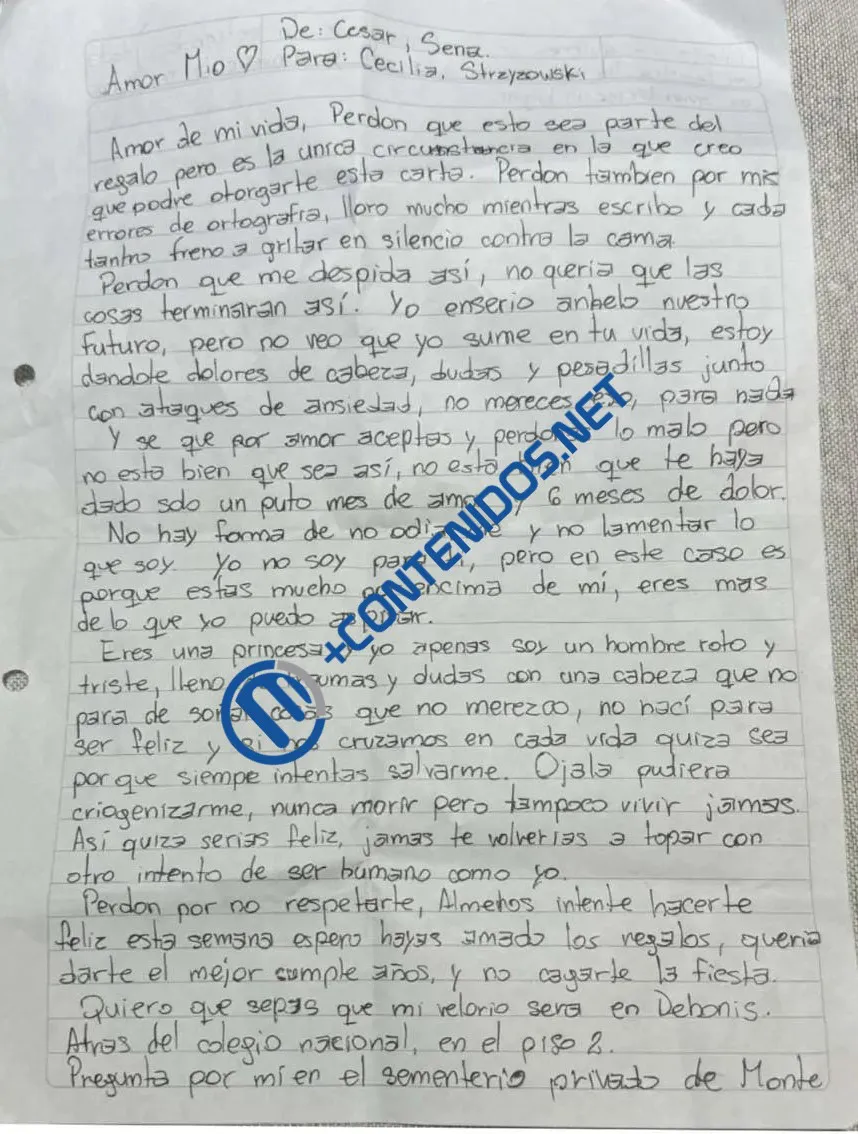 De: Cesar, Sena.
Amor Mio ♡ Para: Cecilia, Strzyzowski
Amor de mi vida, Perdon que esto sea parte del
regalo pero es la unica circunstancia en la que creo
que podre otorgarte esta carta. Perdon tambien por mis
errores de ortografia, lloro mucho mientras escribo y cada
tanto freno a gritar en silencio contra la cama.
Perdon que me despida así, no queria que las
cosas terminaran así! Yo enserio anhelo nuestro
futuro, pero no veo que yo sume en tu vida, estoy
dandote dolores de cabeza, dudas y pesadillas junto
con ataques de ansiedad, no mereces, para nada
Y se que por amor aceptas y lo malo pero
no esta bien que sea así, no esta que te haya
dado solo un puto mes de y 6 meses de dolor.
No hay forma de no y no lamentar lo
que soy. Yo no soy, pero en este caso es
porque estas mucho encima de mí, eres mas
de lo que yo puedo
Eres una princesa yo apenas soy un hombre roto y
triste, lleno y dudas con una cabeza que no
para de que no merezco, no nací para
ser feliz y cruzamos en cada vida quiza sea
porque siempe intentas salvarme. Ojala pudiera
criogenizarme, nunca morir pero tampoco vivir jamas.
Así quiza serias feliz, jamas te volverias a topar con
otro intento de ser humano como yo.
Perdon por no respetarte, Almenos intente hacerte
feliz esta semana espero hayas amado los regalos, queria
darte el mejor cumple años, y no cagarte la fiesta.
Quiero que sepas que mi velorio sera en Debonis.
Atras del colegio nacional, en el piso 2.
Pregunta por mi en el sementerio privado de Monte
+CONTENIDOS.NET